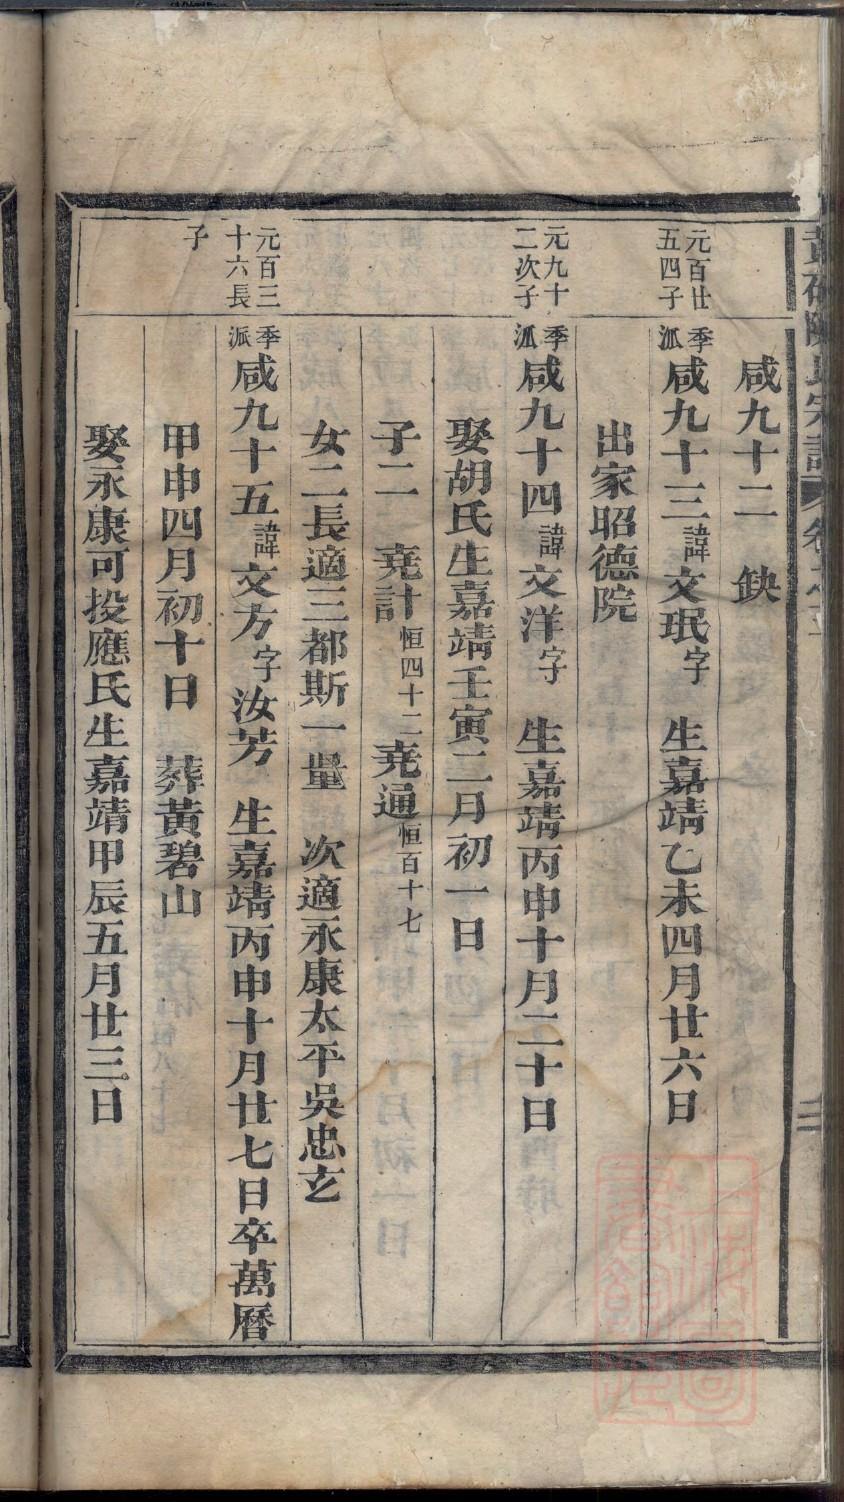 咸九十二 缺
元百廿五四子
季派咸九十三諱文珉字 生嘉靖乙未四月廿六日
出家昭德院
元九十二次子
季派咸九十四諱文洋字 生嘉靖丙申十月二十日
娶胡氏生嘉靖壬寅二月初一日
子二 堯計恒四十二堯通恒百十七
女二長適三都斯一量 次適永康太平吳忠玄
元百三十六長子
季派咸九十五諱文方字汝芳 生嘉靖丙申十月廿七日卒萬曆
甲申四月初十日 葬黃碧山
娶永康可投應氏生嘉靖甲辰五月廿三日